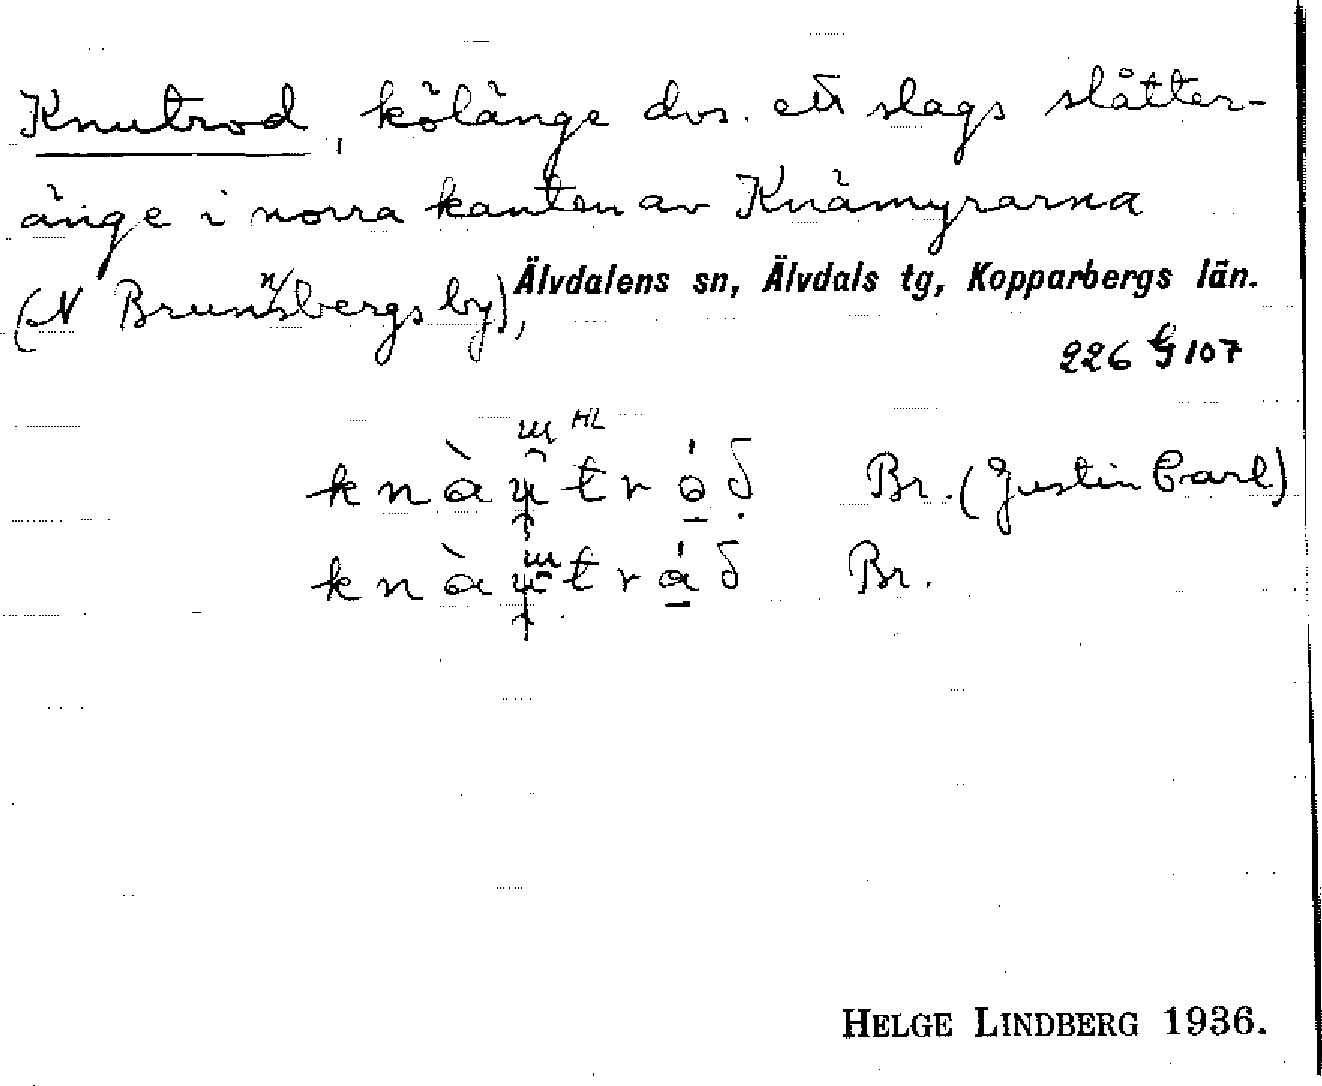 Knutrod, kölänge dvs. ett slags slåtter-
änge i norra kanten av Knämyrarna
(N Brunnsbergs by), Älvdalens sn, Älvdals tg, Kopparbergs län.
226 G 107
HL
Br. (Justin Carl)
Br.
HELGE LINDBERG 1936.